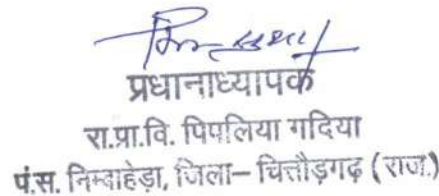 प्रधानाध्यापक
रा.प्रा.वि. पिपलिया गदिया
पं.स. निम्बाहेड़ा, जिला– चित्तौड़गढ़ (राज.)